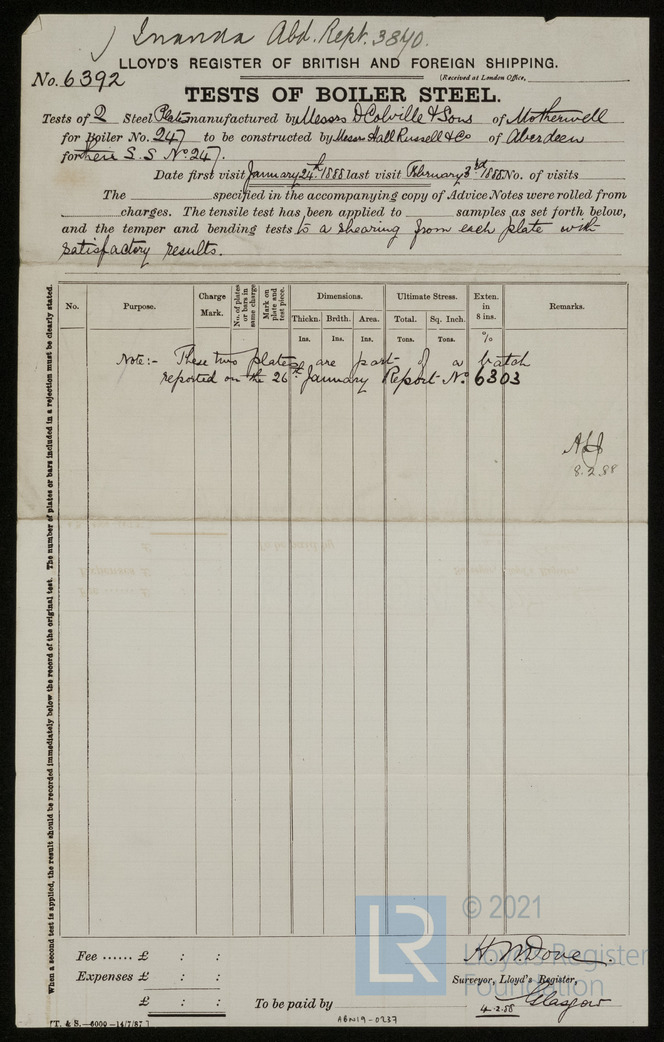 Inanda Abd. Rept. 3840.
LLOYD'S REGISTER OF BRITISH AND FOREIGN SHIPPING.
No. 6392
(Received at London Office,
TESTS OF BOILER STEEL.
Tests of 2 Steel Plates manufactured by Messrs D Colville & Sons of Motherwell
for Boiler No. 247 to be constructed by Messrs Hall Russell & Co of Aberdeen
for their S.S No. 247.
Date first visit January 24th 1888 last visit February 3rd 1888 No. of visits
The specified in the accompanying copy of Advice Notes were rolled from
charges. The tensile test has been applied to samples as set forth below,
and the temper and bending tests to a shearing from each plate with
satisfactory results.
No.
Purpose.
Charge Mark.
No. of plates or bars in same charge
Mark on plate and test piece.
Dimensions.
Ultimate Stress.
Exten. in 8 ins.
Remarks.
Thickn. Brdth. Area. Total. Sq. Inch.
Ins. Ins. Ins. Tons. Tons. %
Note:- These two plates are part of a batch
reported on the 26th January Report No. 6303
8.2.88
When a second test is applied, the result should be recorded immediately below the record of the original test. The number of plates or bars included in a rejection must be clearly stated.
LR
© 2021
Lloyd's Register
Foundation
Fee ...... £ : :
Expenses £ : :
£ : :
To be paid by
Surveyor, Lloyd's Register,
Glasgow
4.2.88
T. & S.—6000—14/7/87
ABN19-0237